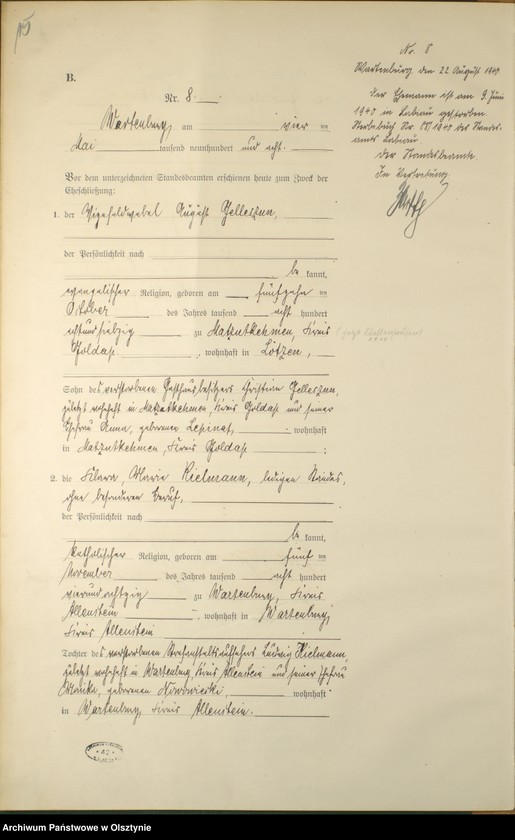 B.
Nr. 8
Wartenburg, am vier ten
Mai tausend neunhundert und acht.
Vor dem unterzeichneten Standesbeamten erschienen heute zum Zweck der
Eheschließung:
1. der Vizefeldwebel August Gelleszun,
der Persönlichkeit nach
be kannt,
evangelischer Religion, geboren am fünfzehn ten
Oktober des Jahres tausend acht hundert
achtundsiebzig zu Matznorkehmen, Kreis
Goldap, wohnhaft in Lötzen,
Sohn des verstorbenen Gasthausbesitzers Christian Gelleszun,
zuletzt wohnhaft in Kreis Goldap und seiner
Ehefrau Anna, geborenen wohnhaft
in Kreis Goldap
2. die Klara, Maria Kielmann, ledigen Standes,
ohne besonderen Beruf,
der Persönlichkeit nach
be kannt,
katholischer Religion, geboren am fünf ten
November des Jahres tausend acht hundert
vierundachtzig zu Wartenburg, Kreis
Allenstein, wohnhaft in Wartenburg,
Kreis Allenstein
Tochter des verstorbenen Strafanstaltsaufsehers Ludwig Kielmann,
zuletzt wohnhaft in Wartenburg, Kreis Allenstein und seiner Ehefrau
geborenen Nowowieski, wohnhaft
in Wartenburg, Kreis Allenstein.
Nr. 8
Wartenburg, den 22. August 1940
Der Ehemann ist am 9. Juni
1940 in Labiau gestorben.
Sterbebuch Nr. /1940 des Standes-
amts Labiau
Der Standesbeamte
In Vertretung
Archiwum Państwowe w Olsztynie